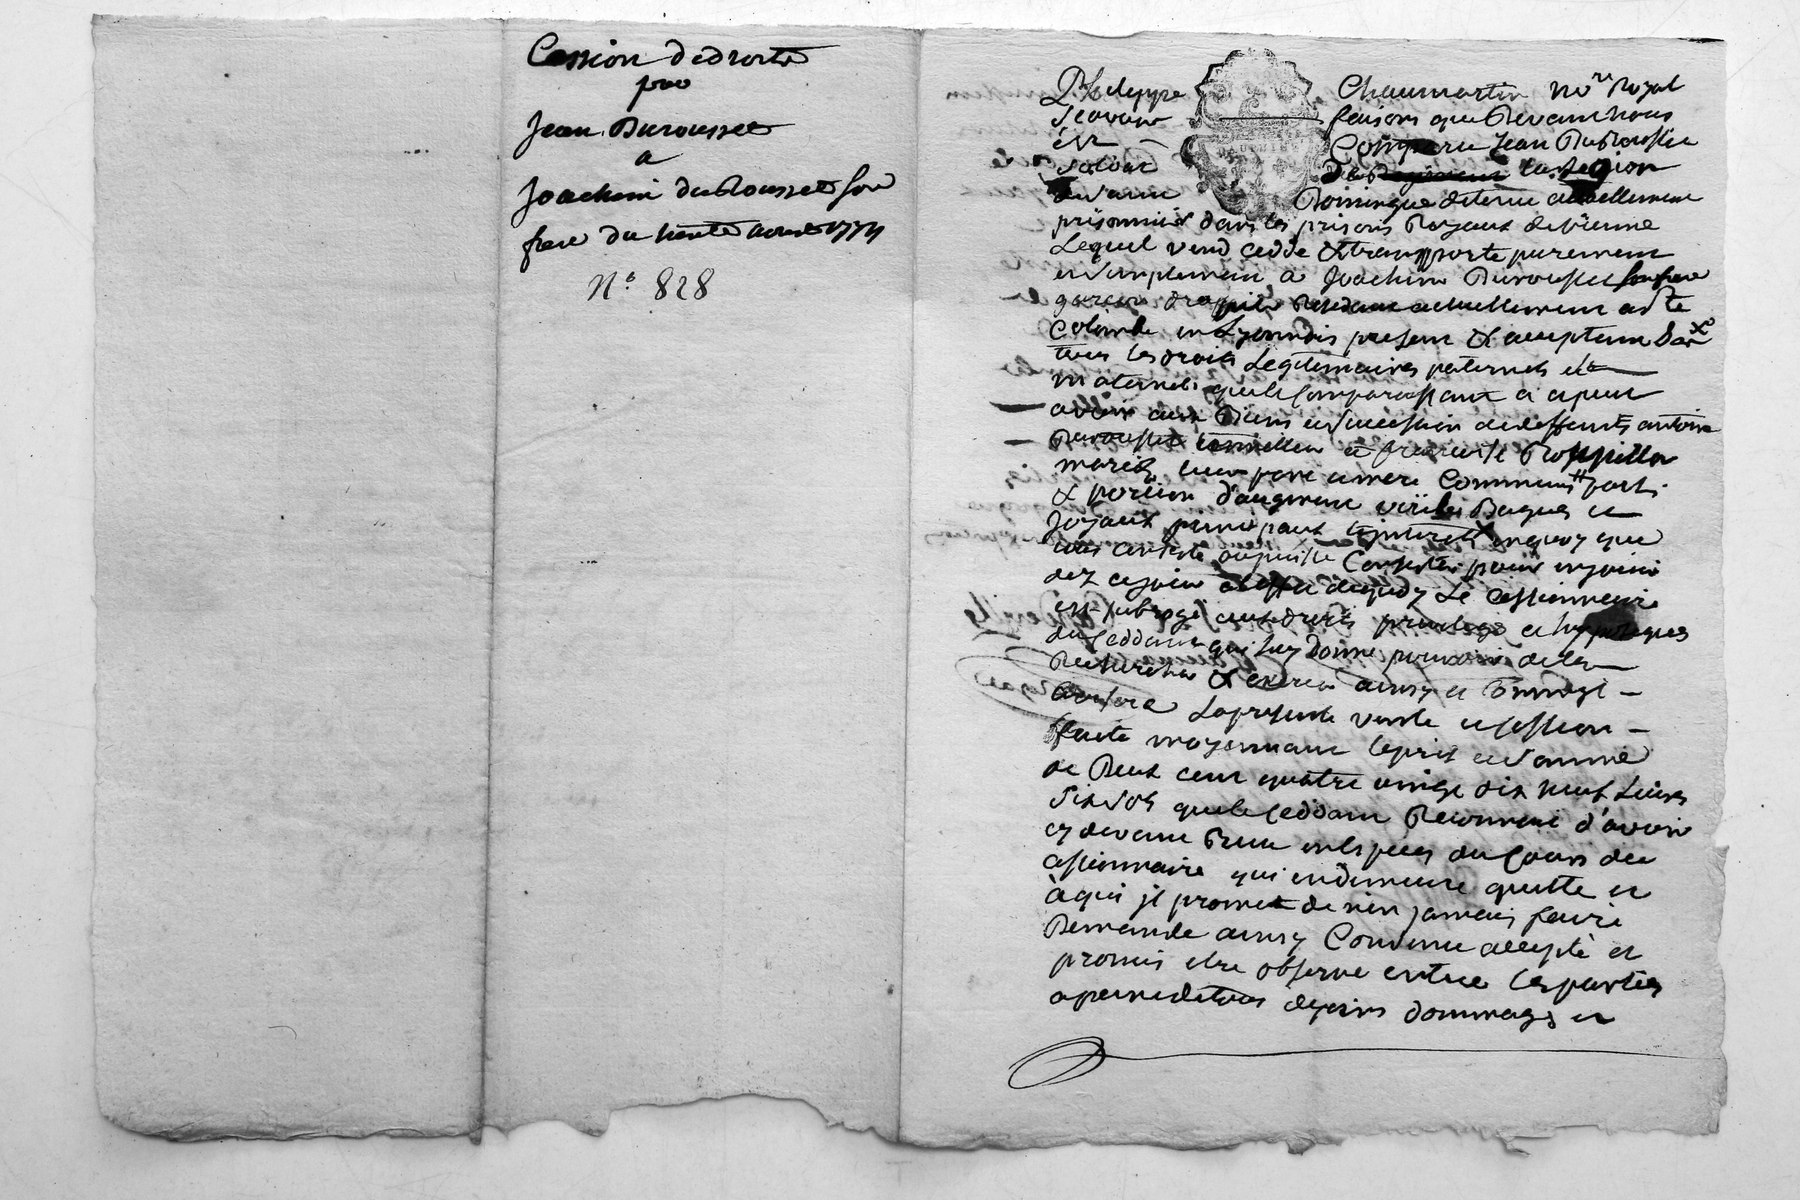 Cession dedroits
par
Jean Durousset
a
Joachim duRousset son
frere du trente aoust 1774
N.° 828
Philippe Chaumartin no.re Royal
Scavoir faisons que Devant nous
est Comparu Jean DuRousset
Soldat De la Legion
Domingue detenu actuellement
prisonnier dans les prisons Royaux de vienne
Lequel vend cedde & transporte purement
et simplement a Joachim Durousset son frere
garçon drappier Residant actuellement a Ste
Colombe en Lyonnois present & acceptant
tous les droits Legitimaires paternels et
maternels que le Comparoissant a a peut
avoir aux Biens et succession de deffunts antoine
Durousset et
mariés leur pere et mere Communs part
& portion d'augment Bagues et
Joyaux principaux & interets en quoy que
le tout consiste ou puisse Consister pour en jouir
dez ce jour a l'effet dequoy Le Cessionnaire
est subrogé aux droits privilege et hypoteques
du Ceddant qui luy donne pouvoir de les
Rechercher & exiger ainsy et
avisera La presente vente et cession
faite moyennant le prix et somme
de Deux cent quatre vingt dix neuf Livres
six sols que le Ceddant Reconnait d'avoir
cy devant Receu en Especes du Cours du
Cessionnaire qui en demeure quitte et
à qui il promet de n'en jamais faire
Demande ainsy Convenu accepté et
promis etre observé entre les parties
a peine de tous depens dommages et